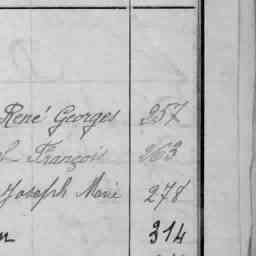 René Georges 257
François 263
Joseph Marie 278
314